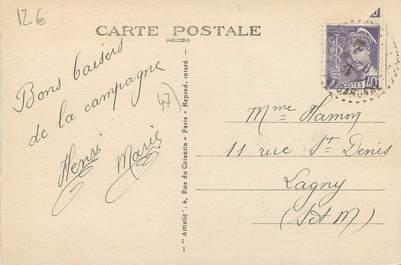 12 €
CARTE POSTALE
POSTES
40
GARONNE
Bons baisers
de la campagne
47
Henri Marie
"Artistic", 4, Rue du Cotentin - Paris - Reprod. interd.
Mme Hamm
11 rue St Denis
Lagny
(S et M)